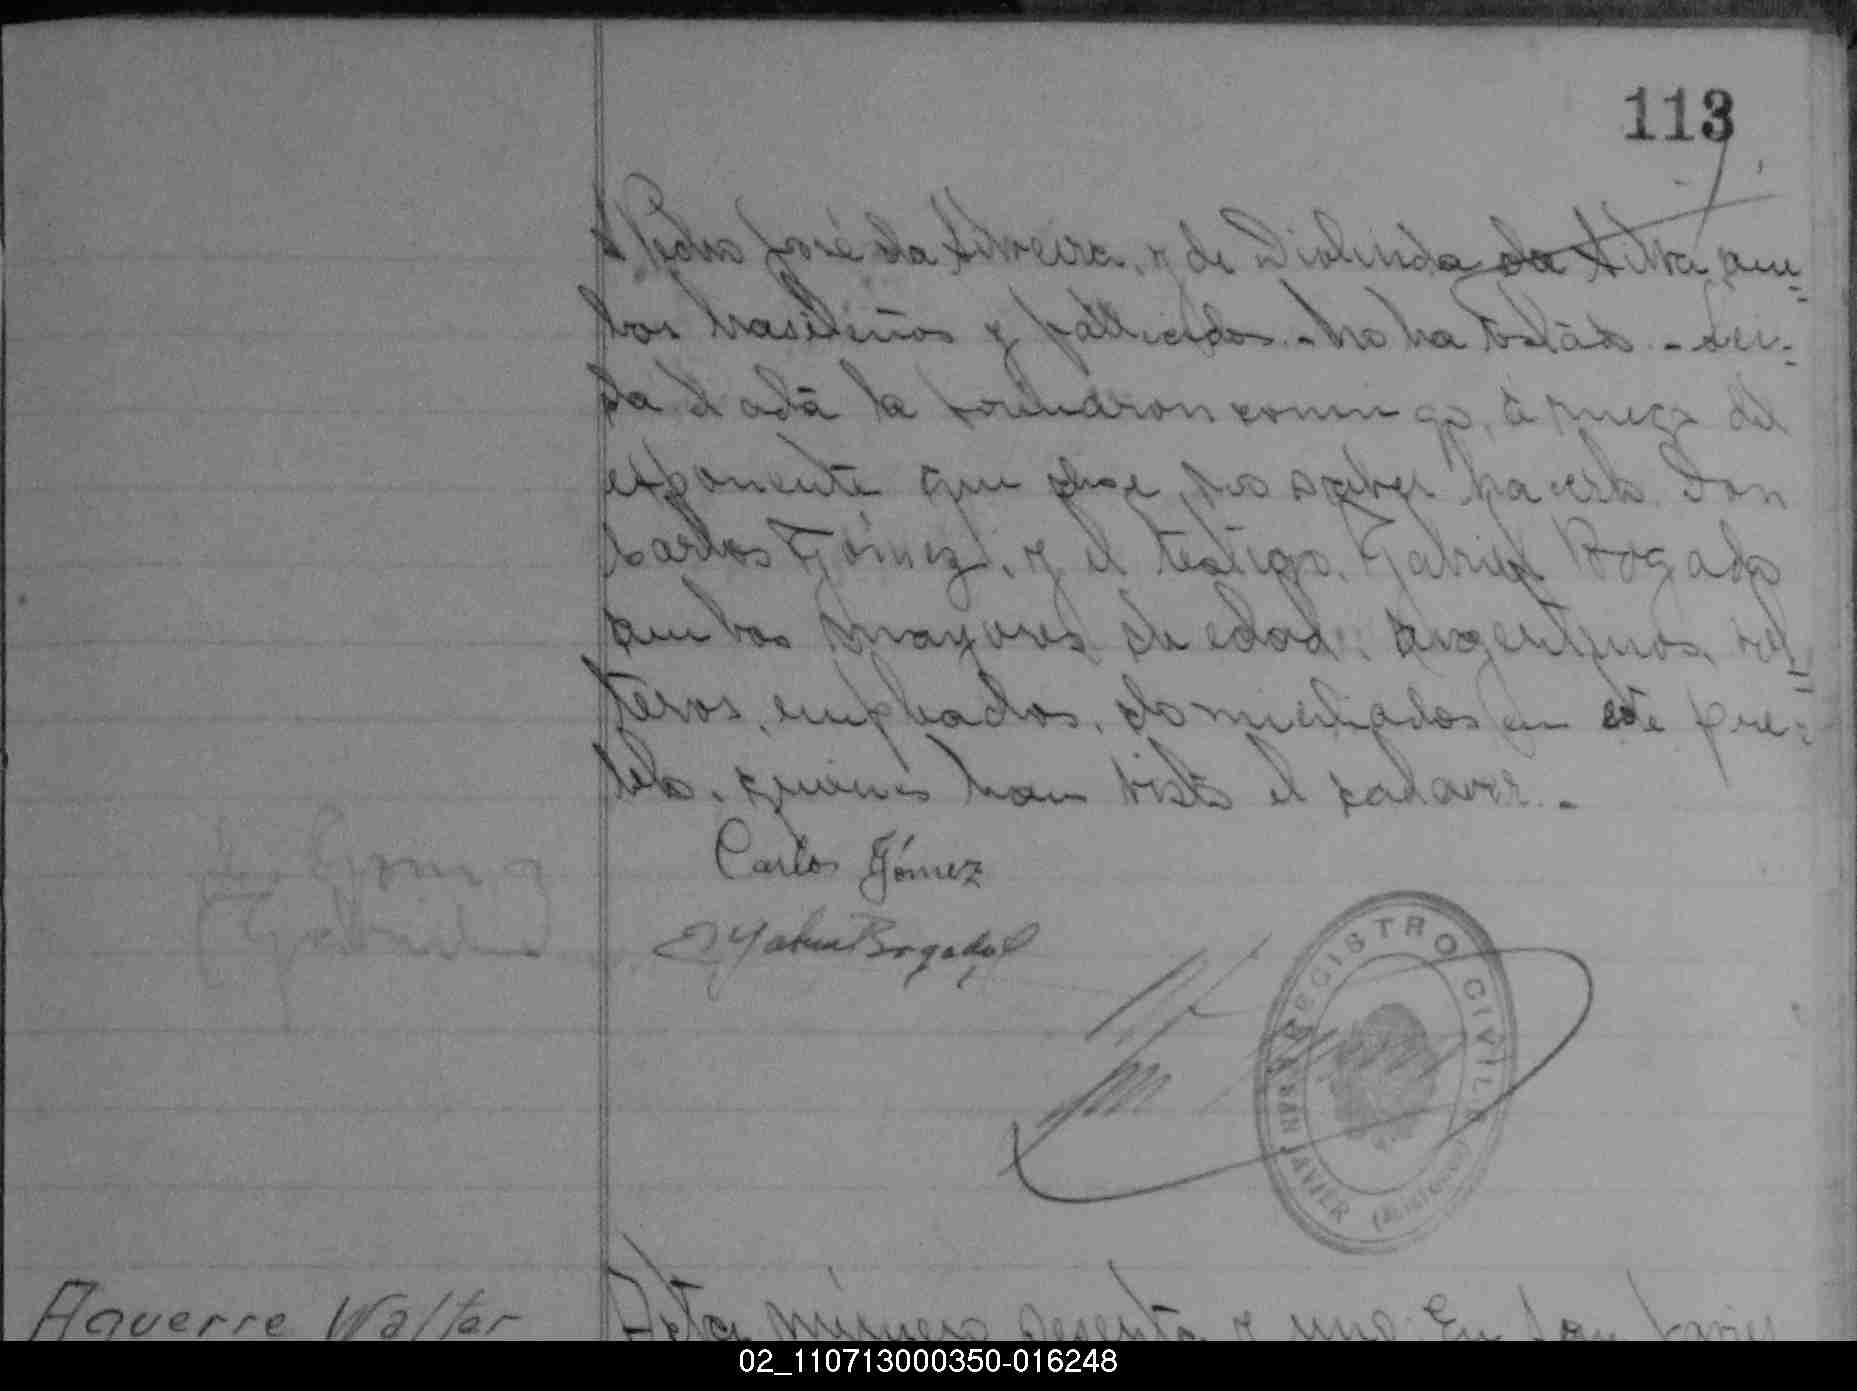 113
Pedro José da Silveira, y de Diolinda da Silva, am-
bos brasileños y fallecidos.- No ha testado.- Lei-
da el acta la firmaron conmigo, á ruego del
exponente que dice no saber hacerlo Don
Carlos Gómez, y el testigo, Gabriel Bogado
ambos mayores de edad, argentinos, sol-
teros, empleados, domiciliados en este pue-
blo, quienes han visto el cadaver.-
Carlos Gómez
Bogado
REGISTRO CIVIL
SAN JAVIER
(MISIONES)
Aguerre Walter
Acta número sesenta y uno. En San Javier
02_110713000350-016248